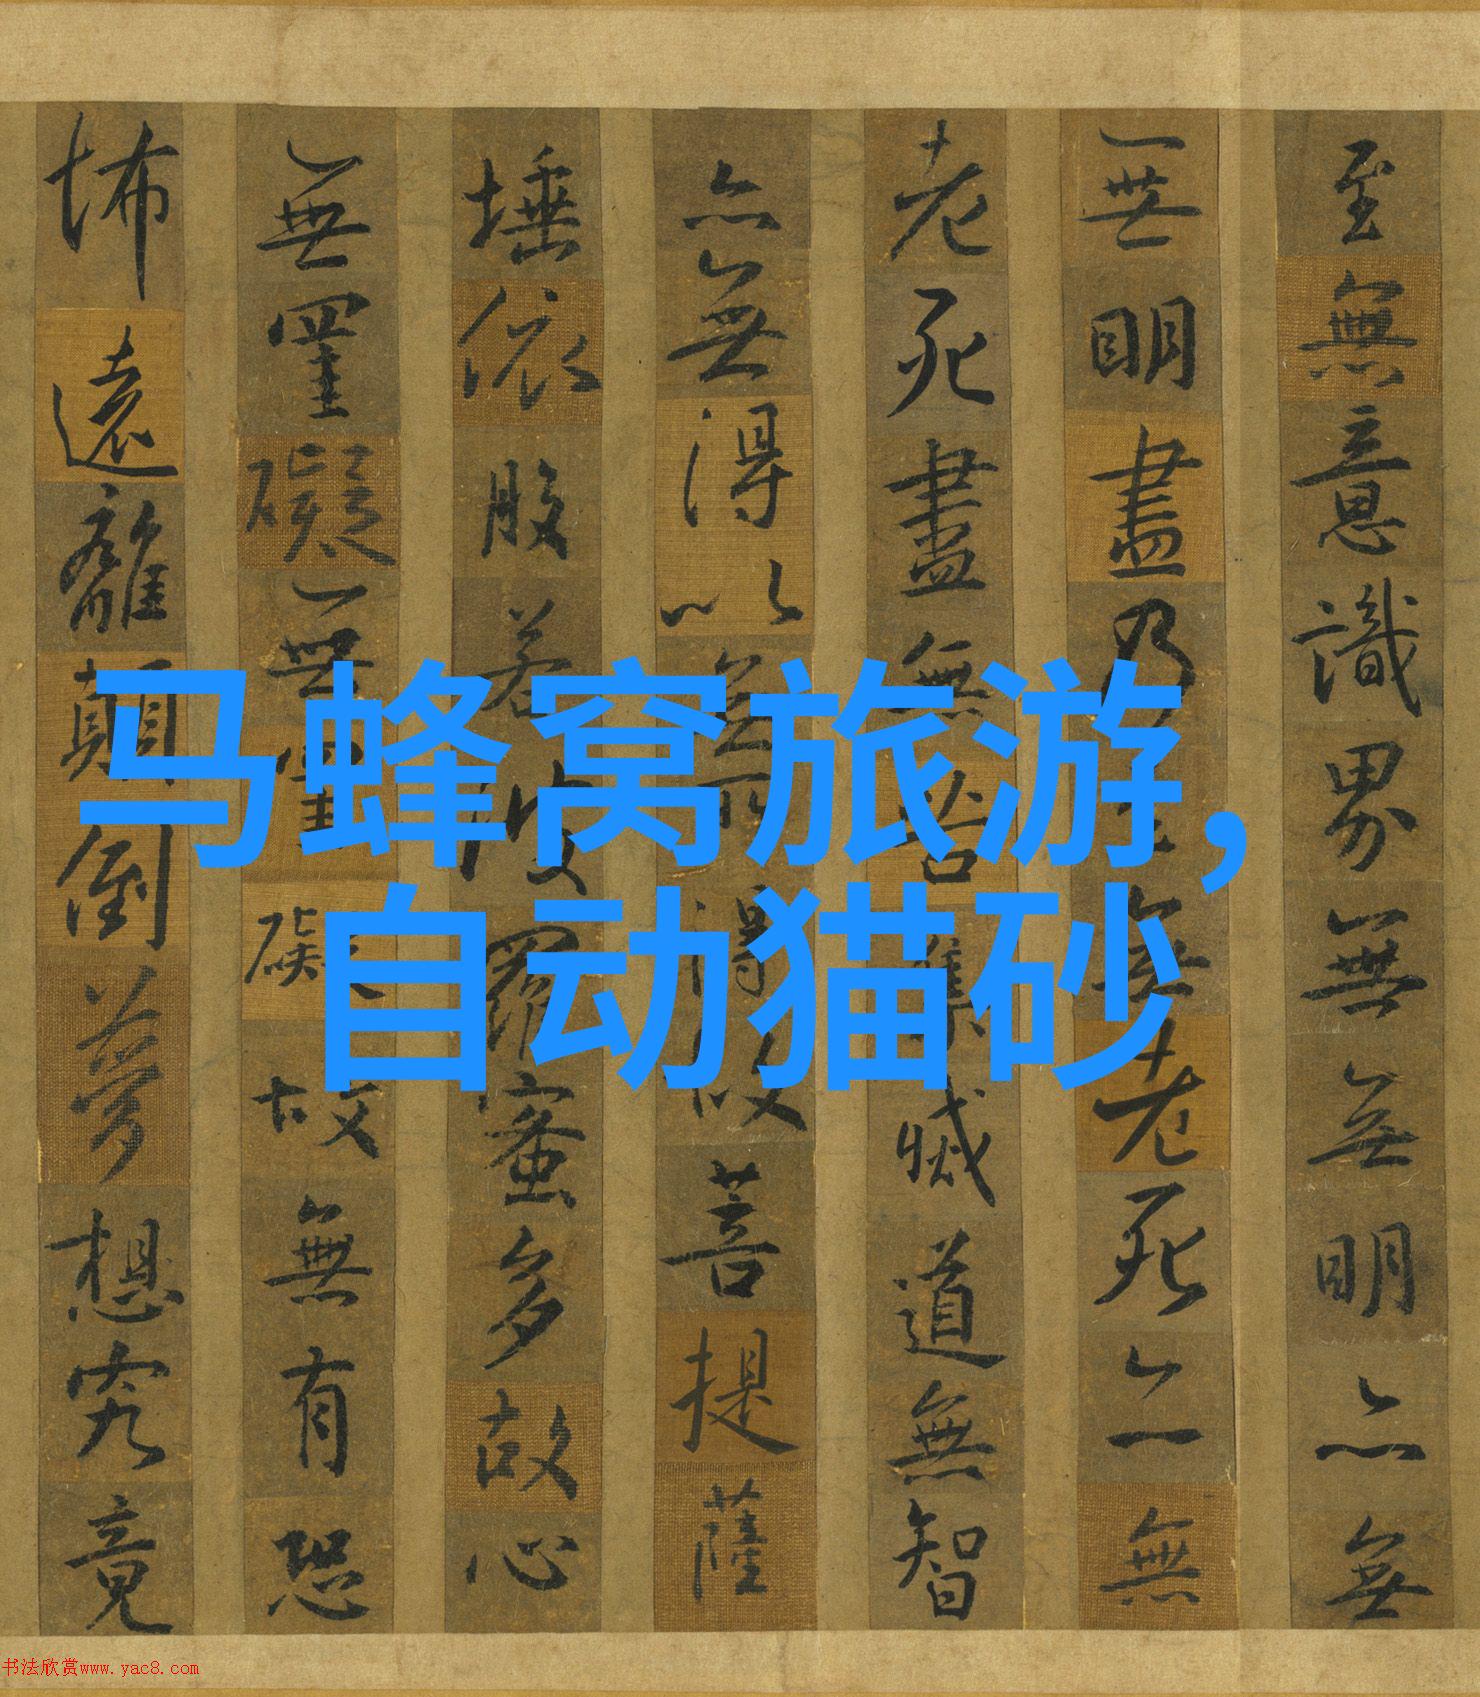 至無意識界無無明亦無
無明盡乃至無老死亦無
老死盡無苦集滅道無智
亦無得以無所得故菩提薩
埵依般若波羅蜜多故心
無罣礙無罣礙故無有恐
怖遠離顛倒夢想究竟
马蜂窝旅游，
自动猫砂
书法欣赏www.yac8.com